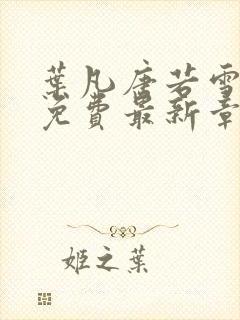 葉凡唐若雪
免費最新章
姬之葉